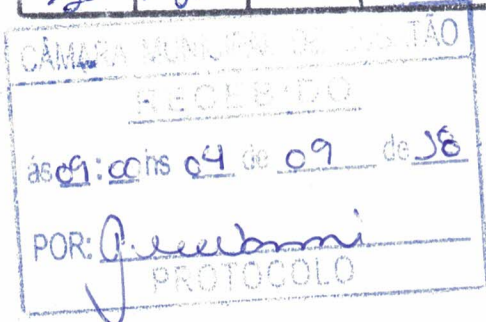 CÂMARA MUNICIPAL DE
RECEBIDO
às 09:00 hs 04 de 09 de 18
POR:
PROTOCOLO